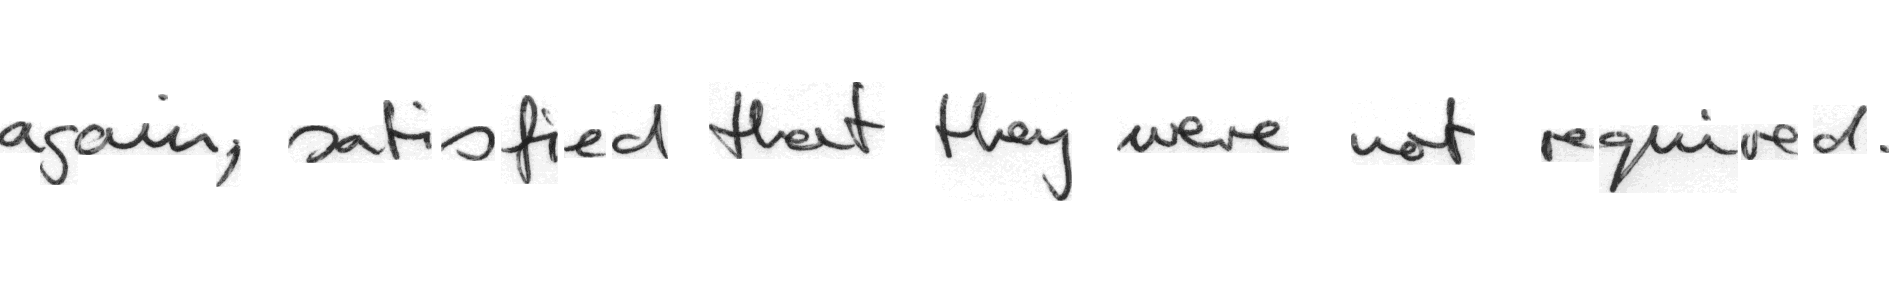 again, satisfied that they were not required.